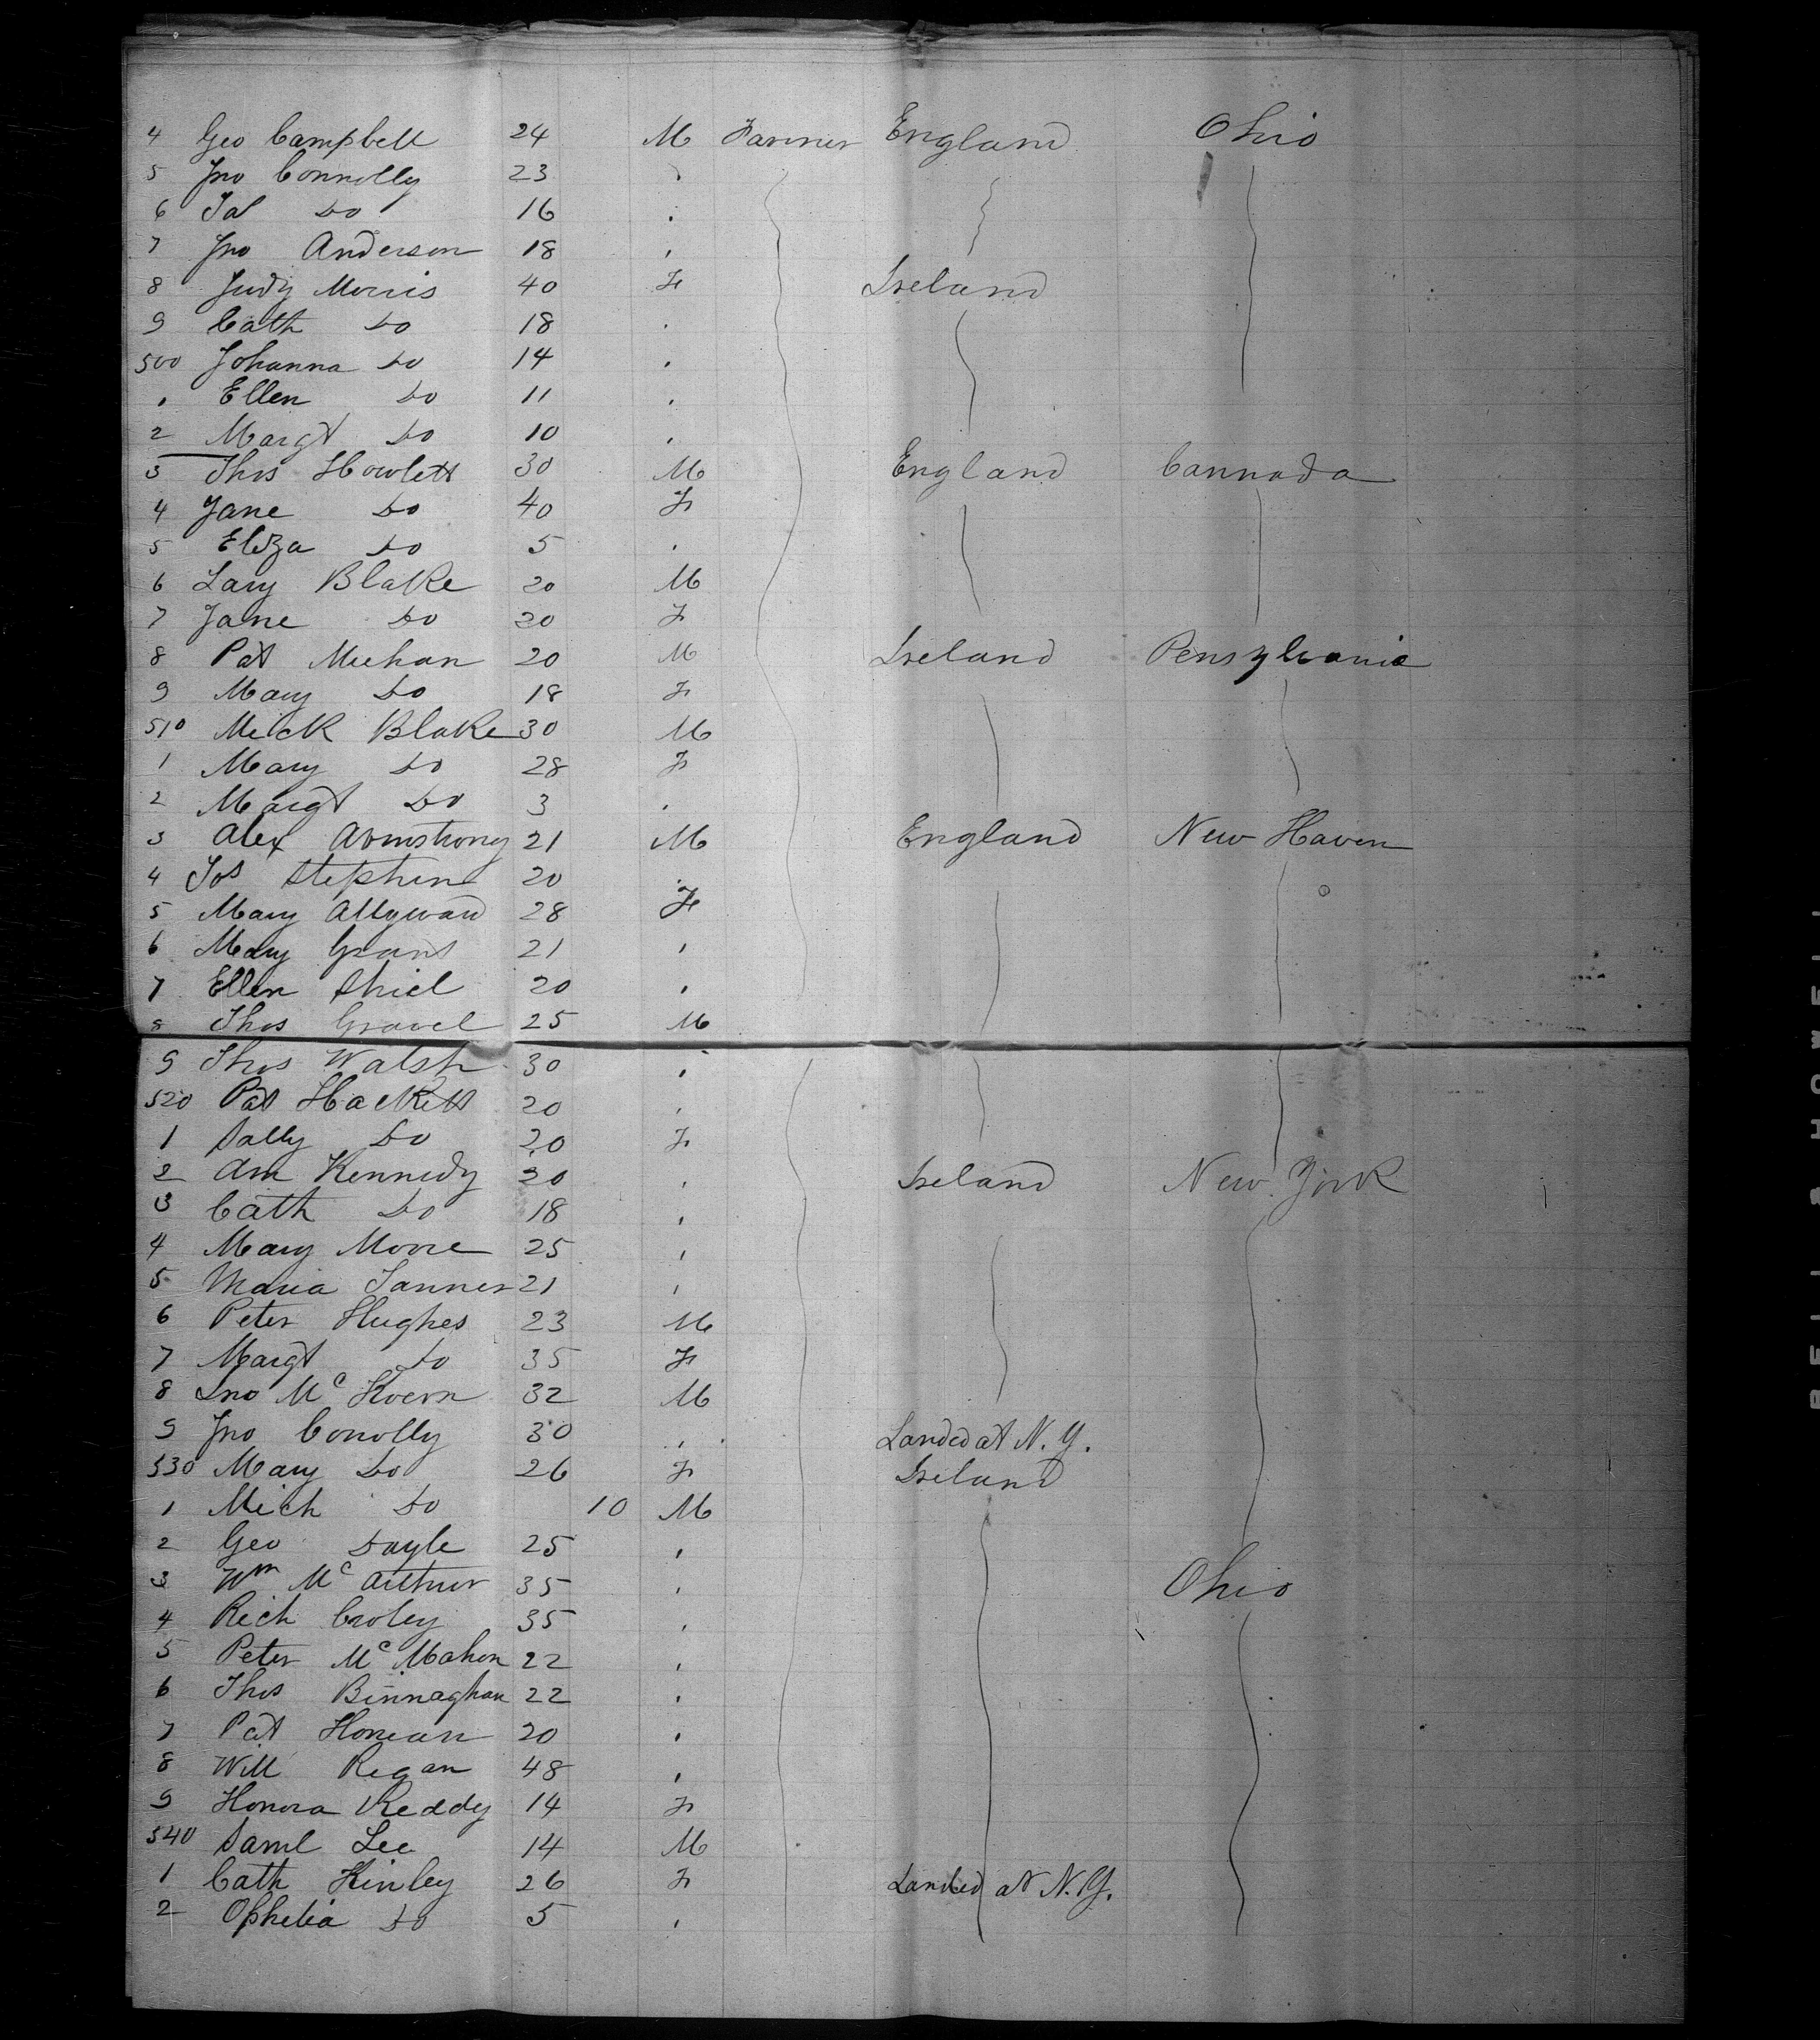 4 Geo Campbell 24 M Farmer England Ohio
5 Jno Connolly 23 "
6 Jas Do 16 "
7 Jno Anderson 18 "
8 Judy Morris 40 F Ireland
9 Cath Do 18 "
500 Johanna Do 14 "
1 Ellen Do 11 "
2 Margt Do 10 "
3 Thos Howlett 30 M England Cannada
4 Jane Do 40 F
5 Eliza Do 5 "
6 Lary Blake 20 M
7 Jane Do 20 F
8 Pat Meehan 20 M Ireland Pensylvania
9 Mary Do 18 F
510 Mick Blake 30 M
1 Mary Do 28 F
2 Margt Do 3 "
3 Alex Armstrong 21 M England New Haven
4 Jos Stephens 20 "
5 Mary Allyward 28 F
6 Mary Grant 21 "
7 Ellen Shiel 20 "
8 Thos Gravel 25 M
9 Thos Walsh 30 "
520 Pat Hackett 20 "
1 Sally Do 20 F
2 Ann Kennedy 20 " Ireland New York
3 Cath Do 18 "
4 Mary Moore 25 "
5 Maria Tanner 21 "
6 Peter Hughes 23 M
7 Margt Do 35 F
8 Jno Mc 32 M
9 Jno Conolly 30 " Landed at N. Y.
530 Mary Do 26 F Ireland
1 Mich Do 10 M
2 Geo Doyle 25 "
3 Wm McArthur 35 " Ohio
4 Rich Croley 35 "
5 Peter McMahon 22 "
6 Thos Binnaghan 22 "
7 Pat Honean 20 "
8 Will Regan 48 "
9 Honora Reddy 14 F
540 Saml Lee 14 M
1 Cath Kinley 26 F Landed at N. Y.
2 Ophelia Do 5 "